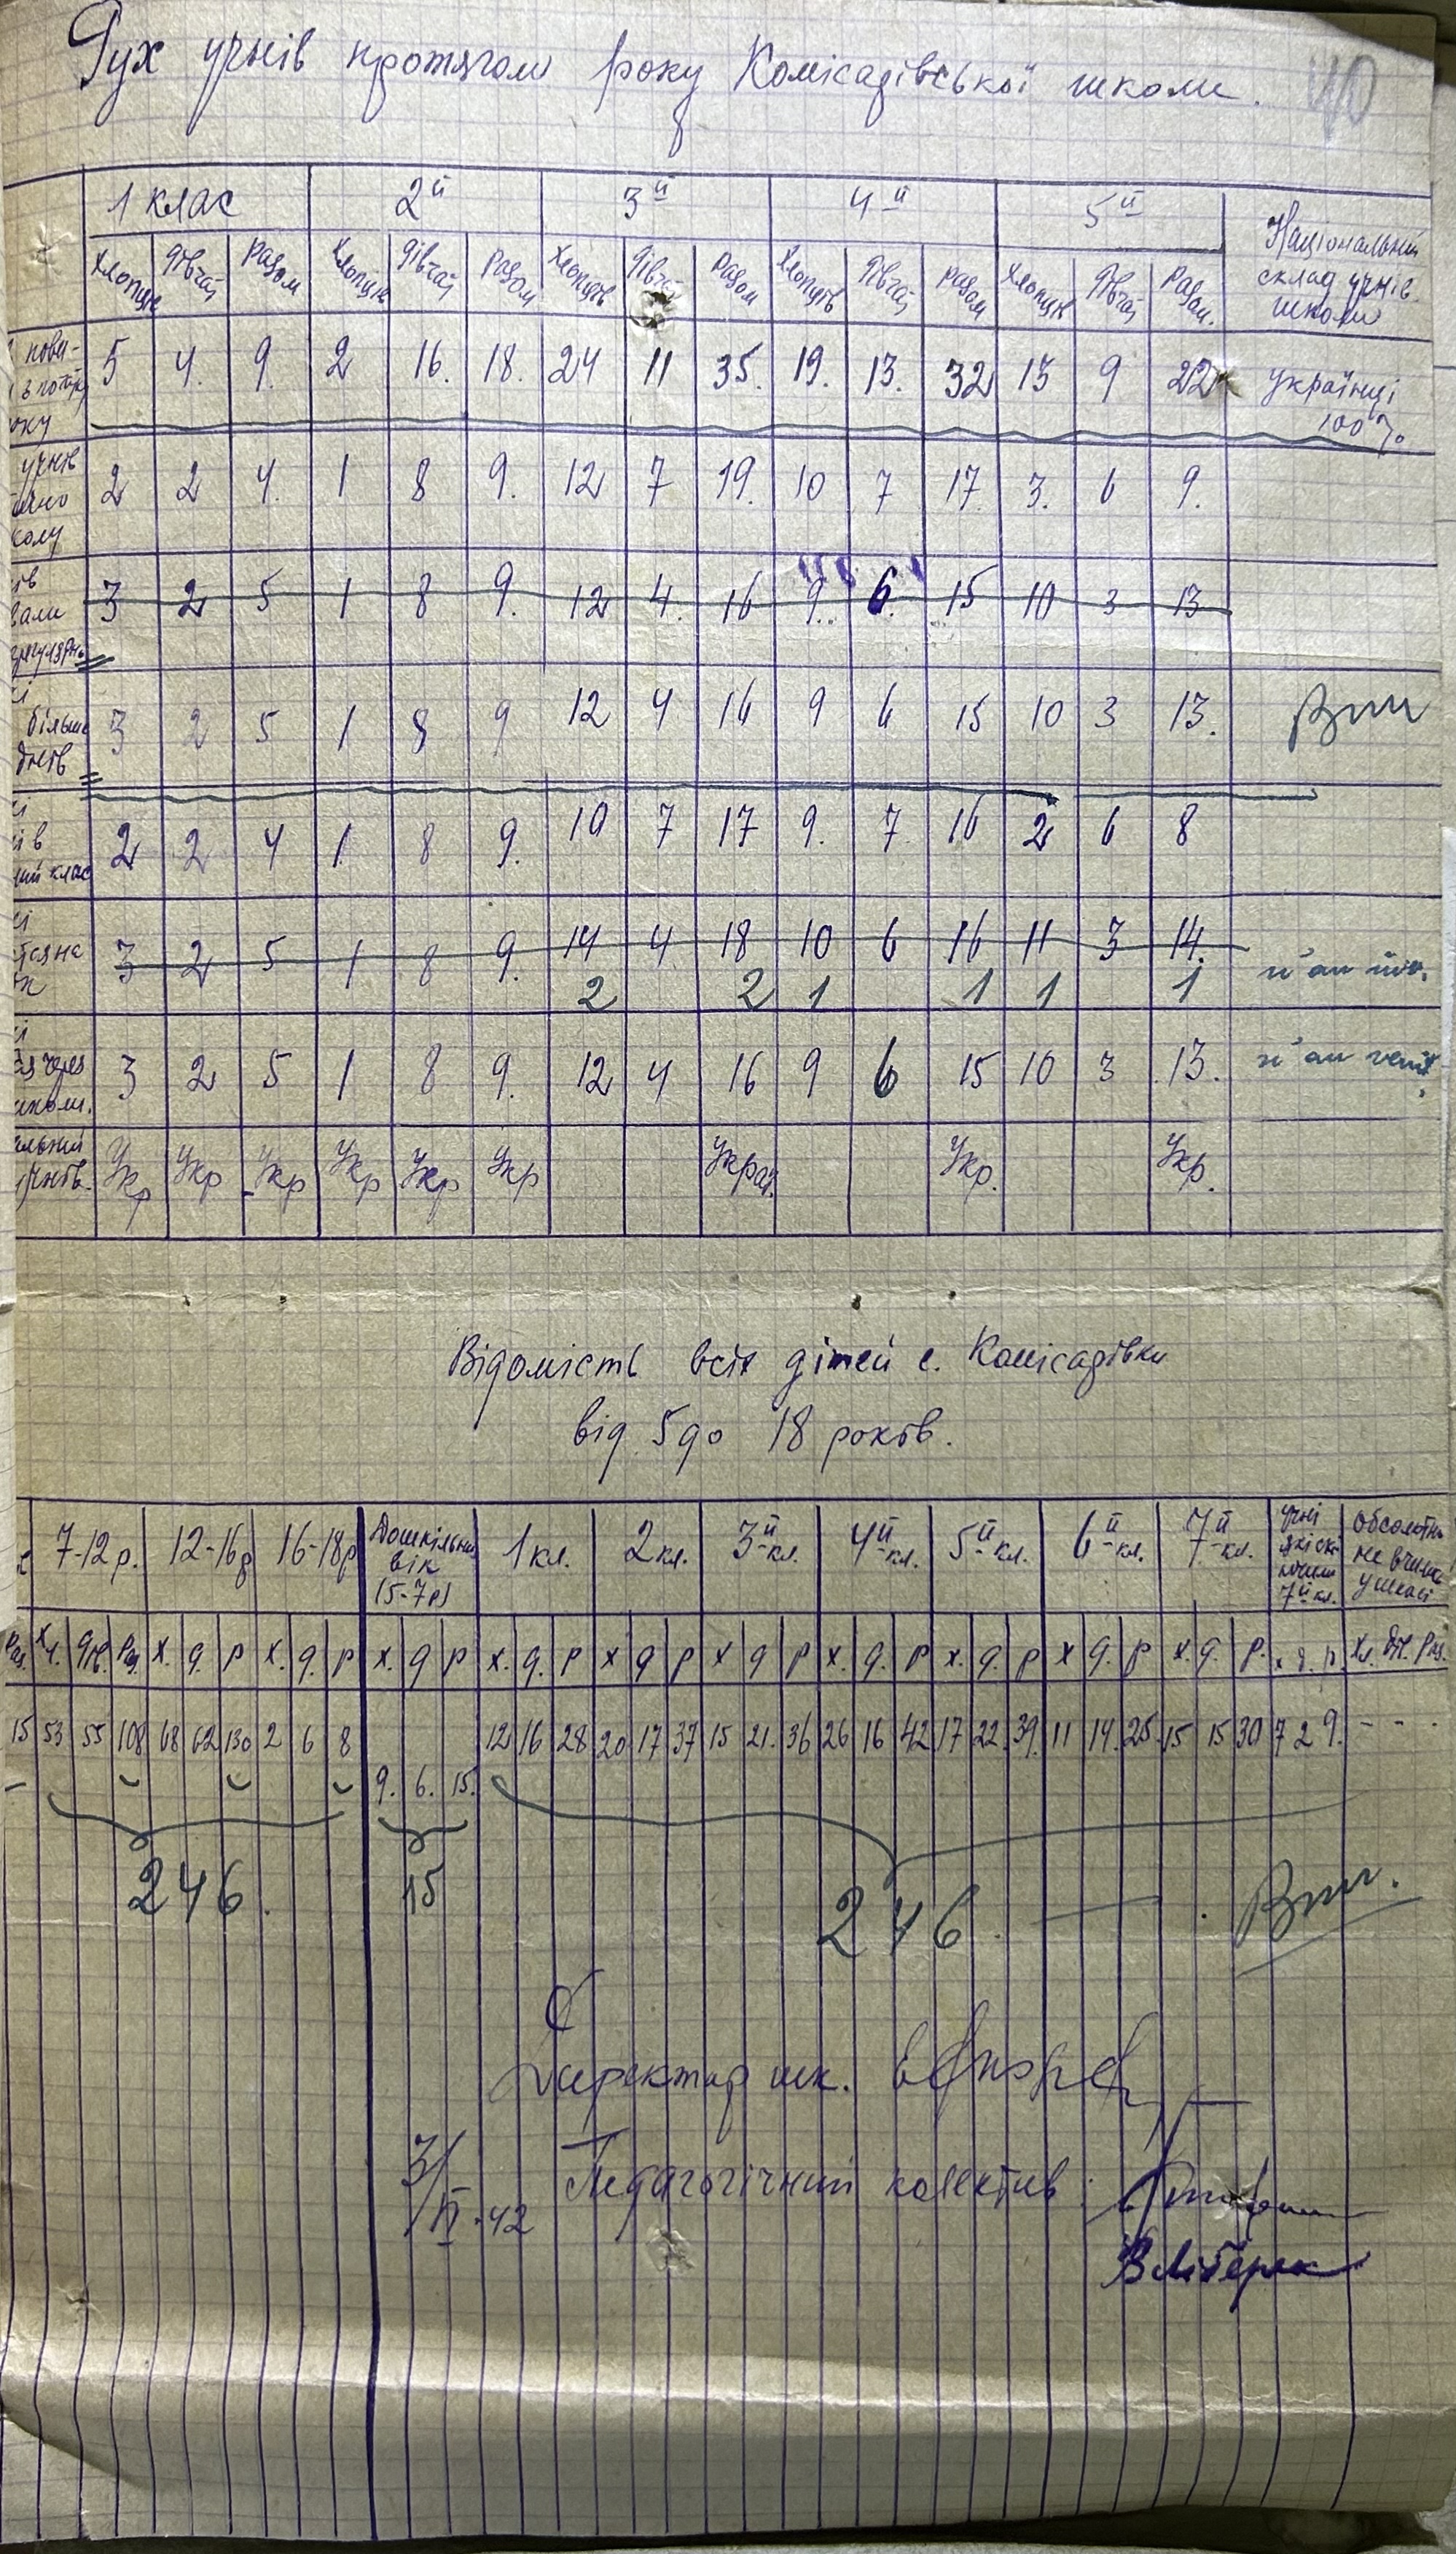 Рух учнів протягом року Комісарівської школи. 40
1 клас 2й 3й 4й 5й Національний склад учнів школи
Хлопців Дівчат Разом Хлопців Дівчат Разом Хлопців Дівчат Разом Хлопців Дівчат Разом Хлопців Дівчат Разом.
5 4. 9. 2 16. 18. 24 11 35. 19. 13. 32 13 9 22 українці 100%
2 2 4. 1 8 9. 12 7 19. 10 7 17. 3. 6 9.
3 2 5 1 8 9. 12 4. 16 9. 6. 15 10 3 13
більше
3 2 5 1 8 9 12 4 16 9 6 15 10 3 13.
2 2 4 1 8 9. 10 7 17 9. 7. 16 2 6 8
3 2 5 1 8 9. 14 4 18 10 6 16 11 3 14.
2 2 1 1 1 1
3 2 5 1 8 9. 12 4 16 9 6 15 10 3 13.
Укр Укр Укр Укр Укр Укр Украї. Укр. Укр.
Відомість всіх дітей с. Комісарівки
від 5 до 18 років.
7-12 р. 12-16 р 16-18 р Дошкільний вік (5-7 р) 1 кл. 2 кл. 3й кл. 4й кл. 5й кл. 6й кл. 7й кл. учні які скінчили 7й кл. Обсолютно не вчились у школі
Раз. Хл. Дів. Раз. х. д. р х. д. р х. д р х. д. р х д р х д р х. д. р х. д. р х д. р х. д. р. х д. р. Хл. Дів. Раз.
15 53 55 108 68 62 130 2 6 8 12 16 28 20 17 37 15 21. 36 26 16 42 17 22. 39. 11 14. 25. 15 15 30 7 2 9. - - -
9. 6. 15.
246. 15 246.
Директор шк.
3/II-42 Педагогічний колектив: